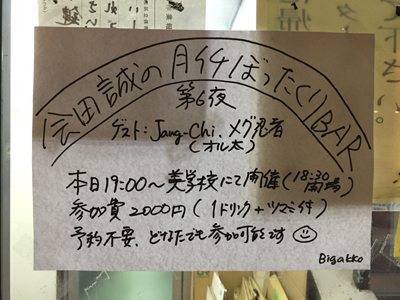 会田誠の月イチぼったくりBAR
第6夜
ゲスト:Jang-Chi、メグ忍者
(オル太)
本日19:00〜美学校にて開催(18:30開場)
参加費2000円(1ドリンク+ツマミ付)
予約不要、どなたでも参加可能です
Bigakko